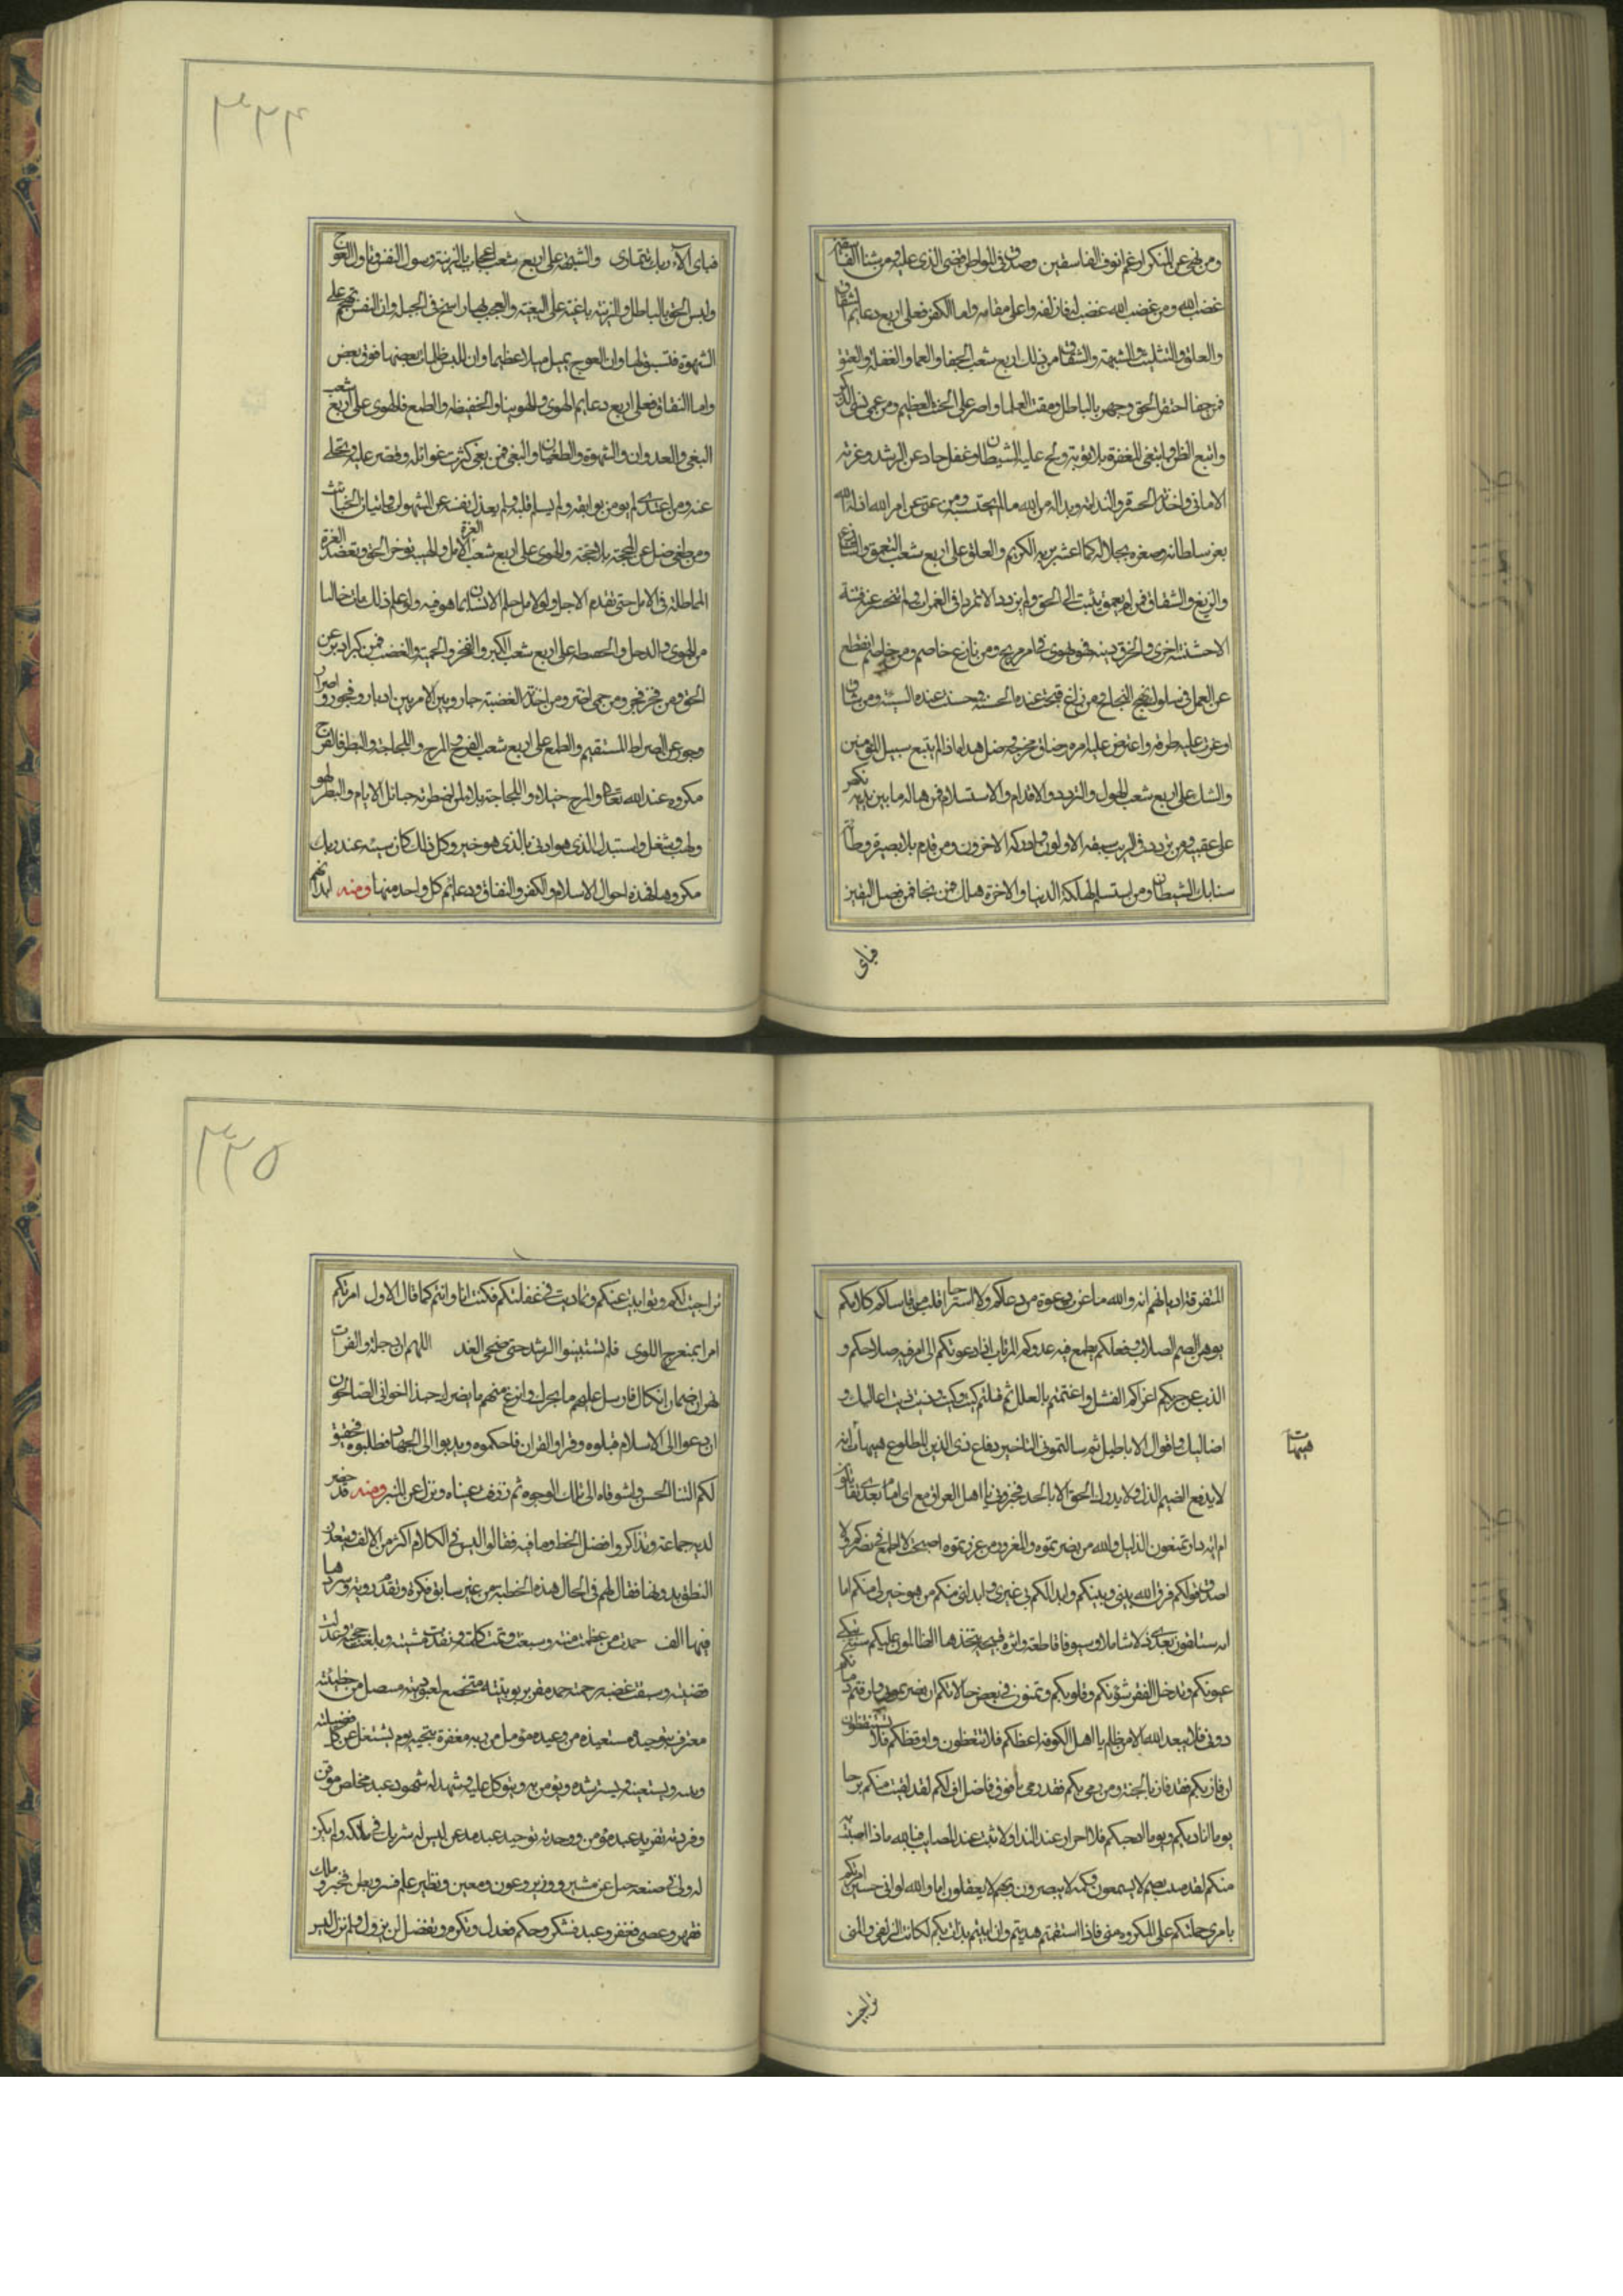 ومن نهى عن المنكر ارغم انوف الفاسقين وصدق فى المواطن قضى الذى عليه ومن شنا الفاسقين
غضب لله ومن غضب لله غضب له فازلفه واعلى مقامه واما الكفر فعلى اربع دعايم الشقاق
والعلو والتثليث والشبهة والشقاق من ذلك اربع شعب الجفا والعما والغفلة والعتو
فمن جفا احتقر الحق وجهر بالباطل ومقت العلما واصر على الحنث العظيم ومن عمى نسى الذكر
واتبع الظن وابتغى المغفرة بلا توبة ولح عليه الشيطان ومن غفل حاد عن الرشد وغرته
الامانى واخذته الحسرة والندامة وبدا له من الله ما لم يحتسب ومن عتى عن امر الله اذله الله
بعز سلطانه وصغره بجلاله كما اغتر بربه الكريم والعلو على اربع شعب التعمق والتنازع
والزيغ والشقاق فمن تعمق لم يثبت الى الحق ولم يزدد الا تمردا فى الغمرات ولم تنحسر عنه فتنة
الا خشنته اخرى وانخرق دينه فهو يهوى فى امر مريج ومن نازع خاصم ومن خاصم انقطع
عن العمل فى سلوك نهج النجاح ومن زاغ قبحت عنده الحسنة وحسنت عنده السيئة ومن شاق
اوعرت عليه طرقه واعترض عليه امره وضاق مخرجه وضل هداه اذ لم يتبع سبيل المؤمنين
والشك على اربع شعب الهول والتردد والاقدام والاستسلام فمن هاله ما بين يديه نكص
على عقبيه ومن تردد فى الريب سبقه الاولون وادركه الاخرون ومن قدم بلا بصيرة وطأته
سنابك الشيطان ومن استسلم لهلكة الدنيا والاخرة هلك فمن نجا فمن فضل اليقين
فباى
٣٢٤
فباى الآء ربك تتمارى والشبهة على اربع شعب اعجاب بالزينة وسول النفس وتاول العوج
ولبس الحق بالباطل والزينة
الشهوة فتسبق لها وان العوج يميل ميلا عظيما وان اللبس ظلمات بعضها فوق بعض
واما النفاق فعلى اربع دعايم الهوى والهوينا والحفيظة والطمع فالهوى على اربع شعب
البغى والعدوان والشهوة والطغيان والبغى فمن بغى كثرت غوائله وقصر عليه وتخلى
عنه ومن اعتدى لم يومن بوايقه ولم يسلم قلبه ولم يعذل نفسه عن الشهوات
ومن طغى ضل عن المحجة بلا حجة والهوى على اربع شعب الغرة الامل والهيبة
المماطلة فى الامل حتى تقدم الاجل ولولا الامل علم الانسان ما هو فيه ولو علم ذلك مات خالبا
من الهوى والدجل والحفيظة على اربع شعب الكبر والفخر والحمية والغضب فمن كبر ادبر عن
الحق ومن فخر فجر ومن حمى اختر ومن اخذته الغضبة حار وبين الامرين ادبار وفجور واصرار
وجور عن الصراط المستقيم والطمع على اربع شعب الفرح والمرح واللجاجة والبطر فالفرح
مكروه عند الله تعالى والمرح خيلاء واللجاجة بلاء لمن اضطرته حبائل الايام والبطر لهو
ولعب وشغل واستبدال الذى هو ادنى بالذى هو خير وكل ذلك كان سيئه عند ربك
مكروها فهذه احوال الاسلام والكفر والنفاق ودعائم كل واحد منها ومنه ابدانهم
المتفرقة اديانهم انه والله ما عزت دعوة من دعاكم ولا استراح قلب من قاساكم كلامكم
يوهن الصم الصلاب وفعلكم يطمع فيه عدوكم المرتاب اذا دعوتكم الى امر فيه صلاحكم و
الذب عن حريمكم اعتراكم الفشل واعتللتم بالعلل ثم قلتم كيت وكيت وذيت وذيت اعاليل و
اضاليل واقوال الاباطيل ثم سالتمونى التاخير دفاع ذى الدين المطول هيهات انه
هيهات
لا يدفع الضيم الذليل ولا يدرك الحق الا بالجد فخبرونى يا اهل العراق مع اى امام بعدى تقاتلون
ام اية دار تمنعون الذليل والله من نصرتموه والمغرور من غررتموه اصبحت لا اطمع فى نصركم ولا
اصدق قولكم فرق الله بينى وبينكم وابدلكم بى غيرى وابدلنى منكم من هو خير لى منكم اما
انه ستلقون بعدى ذلا شاملا وسيوفا قاطعة واثرة قبيحة يتخذها الظالمون عليكم سنة تبكى
عيونكم وتدخل الفقر بيوتكم وقلوبكم وتمنون فى بعض حالاتكم ان
دونى فلا يبعد الله الا من ظلم يا اهل الكوفة اعظكم فلا تتعظون واوقظكم فلا تستيقظون
ان من فاز بكم فقد فاز بالخيبة ومن رمى بكم فقد رمى بأفوق ناصل اف لكم لقد لقيت منكم برحا
يوما اناديكم ويوما اناجيكم فلا احرار عند النداء ولا ثبت عند المصائب فيا لله ماذا
منكم لقد منيت بصم لا يسمعون وكمه لا يبصرون وبكم لا يعقلون اما والله لو انى حين امرتكم
بامرى حملتكم على المكروه منى فاذا استقمتم هديتم وان ابيتم بدأت بكم لكانت الزلفى
تراخيت
٣٢٥
تراخيت لكم وتوانيت عنكم وتماديت فى غفلتكم فكنت انا وانتم كما قال الاول امرتكم
امرا بمنعرج اللوى فلم تستبينوا الرشد حتى ضحى الغد اللهم ان دجلة والفرات
نهران اصمان ابكمان فارسل عليهم ماء بحرك وانزع منهم ماء نصرك حبذا اخوانى الصالحون
ان دعوا الى الاسلام قبلوه وقرأوا القران فاحكموه وندبوا الى الجهاد فطلبوه فحقيق
لكم الثناء الحسن واشوقاه الى تلك الوجوه ثم ذرفت عيناه ونزل عن المنبر ومنه قد حضر
لديه جماعة وتذاكروا فضل الخط وما فيه فقالوا ليس فى الكلام اكثر من الالف ويتعذر
النطق بدونها فقال لهم فى الحال هذه الخطبة من غير سابق فكرة وتقدم روية وسردها
فيها الف حمدت من عظمت منته وسبغت نعمته وتمت كلمته ونفذت مشيته وبلغت حجته وعدلت
قضيته وسبقت غضبه رحمته حمده مقر بربوبيته متخضع لعبوديته متنصل من خطيئته
معترف بتوحيده مستعيذ من وعيده مؤمل من ربه مغفرة تنجيه يوم يشغل عن كل فصيلته
وبنيه ويستعينه ويسترشده ويؤمن به ويتوكل عليه وشهد له شهود عبد مخلص موقن
وفردته تفريد عبد مؤمن ووحدته توحيد عبد مذعن ليس له شريك فى ملكه ولم يكن
له ولى فى صنعه جل عن مشير ووزير وعون ومعين ونظير علم فستر وبطن فخبر وملك
فقهر وعصى فغفر وعبد فشكر وحكم فعدل وتكرم وتفضل لن يزول ولم يزل ليس